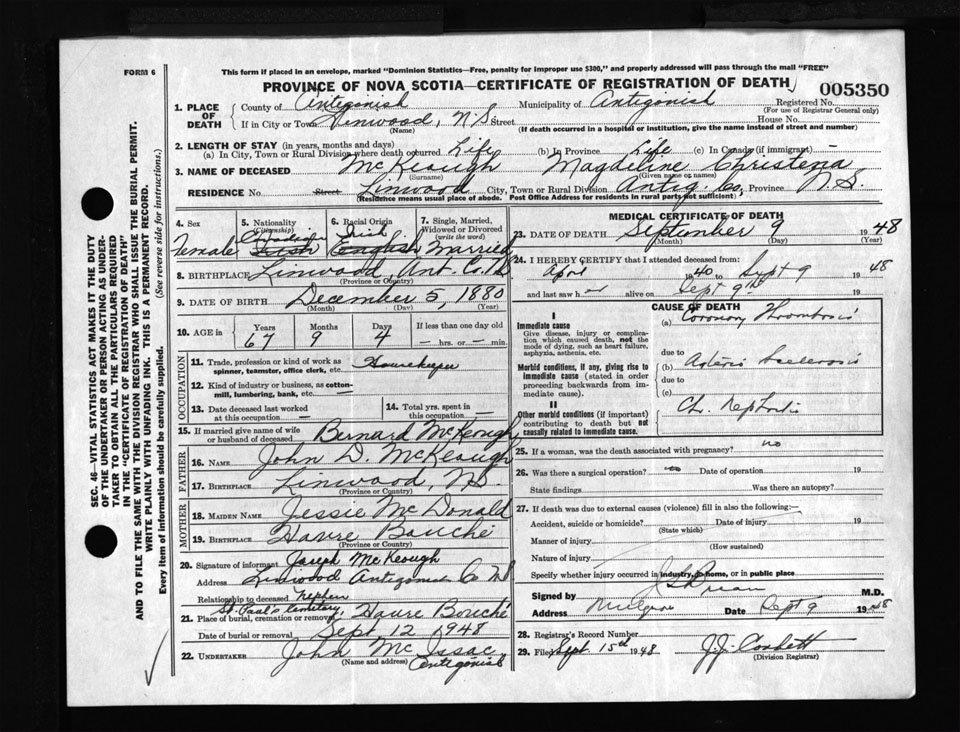 FORM 6
This form if placed in an envelope, marked "Dominion Statistics—Free, penalty for improper use $300," and properly addressed will pass through the mail "FREE"
PROVINCE OF NOVA SCOTIA—CERTIFICATE OF REGISTRATION OF DEATH
005350
1. PLACE OF DEATH
County of Antigonish Municipality of Antigonish Registered No.
(For use of Registrar General only)
If in City or Town Linwood, N.S. Street House No.
(Name) (If death occurred in a hospital or institution, give the name instead of street and number)
2. LENGTH OF STAY (in years, months and days)
(a) In City, Town or Rural Division where death occurred Life (b) In Province Life (c) In Canada (if immigrant)
3. NAME OF DECEASED McKeough Magdeline Christena
(Surname) (Given name or names)
RESIDENCE No Street Linwood City, Town or Rural Division Antig. Co, Province N.S.
(Residence means usual place of abode. Post Office Address for residents in rural parts not sufficient)
4. Sex 5. Nationality (Citizenship) 6. Racial Origin 7. Single, Married, Widowed or Divorced (write the word)
Female Canadian Irish Irish English Married
8. BIRTHPLACE Linwood, Ant. Co. N.S.
(Province or Country)
9. DATE OF BIRTH December 5, 1880
(Month) (Day) (Year)
10. AGE in Years Months Days If less than one day old
67 9 4 — hrs. or — min.
OCCUPATION
11. Trade, profession or kind of work as spinner, teamster, office clerk, etc. Housekeeper
12. Kind of industry or business, as cotton-mill, lumbering, bank, etc. —
13. Date deceased last worked at this occupation —
14. Total yrs. spent in this occupation —
15. If married give name of wife or husband of deceased Bernard McKeough
FATHER
16. NAME John D. McKeough
17. BIRTHPLACE Linwood, N.S.
(Province or Country)
MOTHER
18. MAIDEN NAME Jessie McDonald
19. BIRTHPLACE Havre Bouche
(Province or Country)
20. Signature of informant Joseph McKeough
Address Linwood Antigonish Co N.S
Relationship to deceased Nephew
21. Place of burial, cremation or removal St. Paul's Cemetery, Havre Bouché
Date of burial or removal Sept. 12 1948
22. UNDERTAKER John McIssac
(Name and address) Antigonish
MEDICAL CERTIFICATE OF DEATH
23. DATE OF DEATH September 9 1948
(Month) (Day) (Year)
24. I HEREBY CERTIFY that I attended deceased from:
April 1940 to Sept 9 1948
and last saw h er alive on Sept 9th 19
CAUSE OF DEATH
I
Immediate cause
Give disease, injury or complication which caused death, not the mode of dying, such as heart failure, asphyxia, asthenia, etc.
(a) Coronary Thrombosis
due to
Morbid conditions, if any, giving rise to immediate cause (stated in order proceeding backwards from immediate cause).
(b) Arterio Sclerosis
due to
(c)
II
Other morbid conditions (if important) contributing to death but not causally related to immediate cause.
Ch. Nephritis
25. If a woman, was the death associated with pregnancy? no
26. Was there a surgical operation? no Date of operation 19
State findings Was there an autopsy?
27. If death was due to external causes (violence) fill in also the following:
Accident, suicide or homicide? Date of injury 19
(State which)
Manner of injury
(How sustained)
Nature of injury
Specify whether injury occurred in industry, home, or in public place
Signed by M.D.
Address Mulgrave Date Sept 9 1948
28. Registrar's Record Number
29. Filed Sept. 15th 1948 J.J. Corbett
(Division Registrar)
SEC. 46—VITAL STATISTICS ACT MAKES IT THE DUTY OF THE UNDERTAKER OR PERSON ACTING AS UNDERTAKER TO OBTAIN ALL THE PARTICULARS REQUIRED IN THE "CERTIFICATE OF REGISTRATION OF DEATH"
AND TO FILE THE SAME WITH THE DIVISION REGISTRAR WHO SHALL ISSUE THE BURIAL PERMIT.
WRITE PLAINLY WITH UNFADING INK. THIS IS A PERMANENT RECORD.
Every item of information should be carefully supplied. (See reverse side for instructions.)